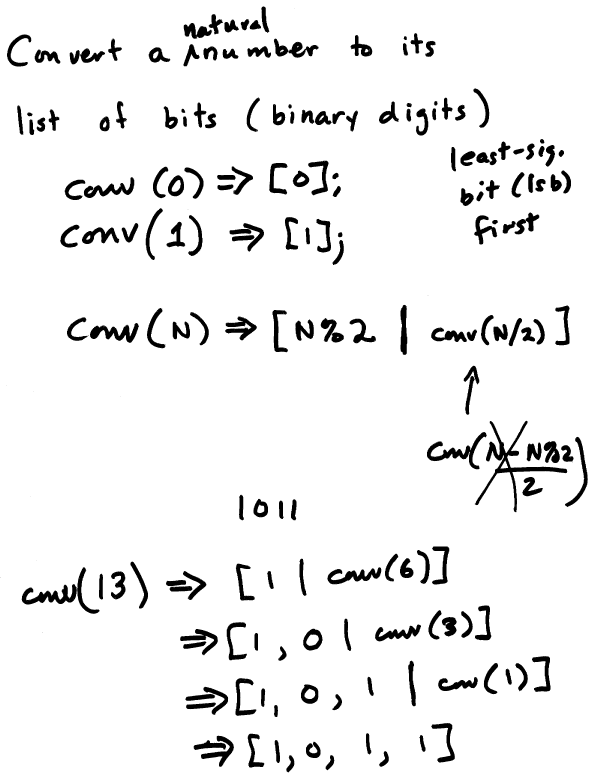 Convert a natural number to its
list of bits (binary digits)
least-sig.
bit (lsb)
first
conv (0) ⇒ [0];
conv(1) ⇒ [1];
conv(N) ⇒ [N%2 | conv(N/2)]
↑
conv(N - N%2 / 2)
1011
conv(13) ⇒ [1 | conv(6)]
⇒ [1, 0 | conv(3)]
⇒ [1, 0, 1 | conv(1)]
⇒ [1, 0, 1, 1]